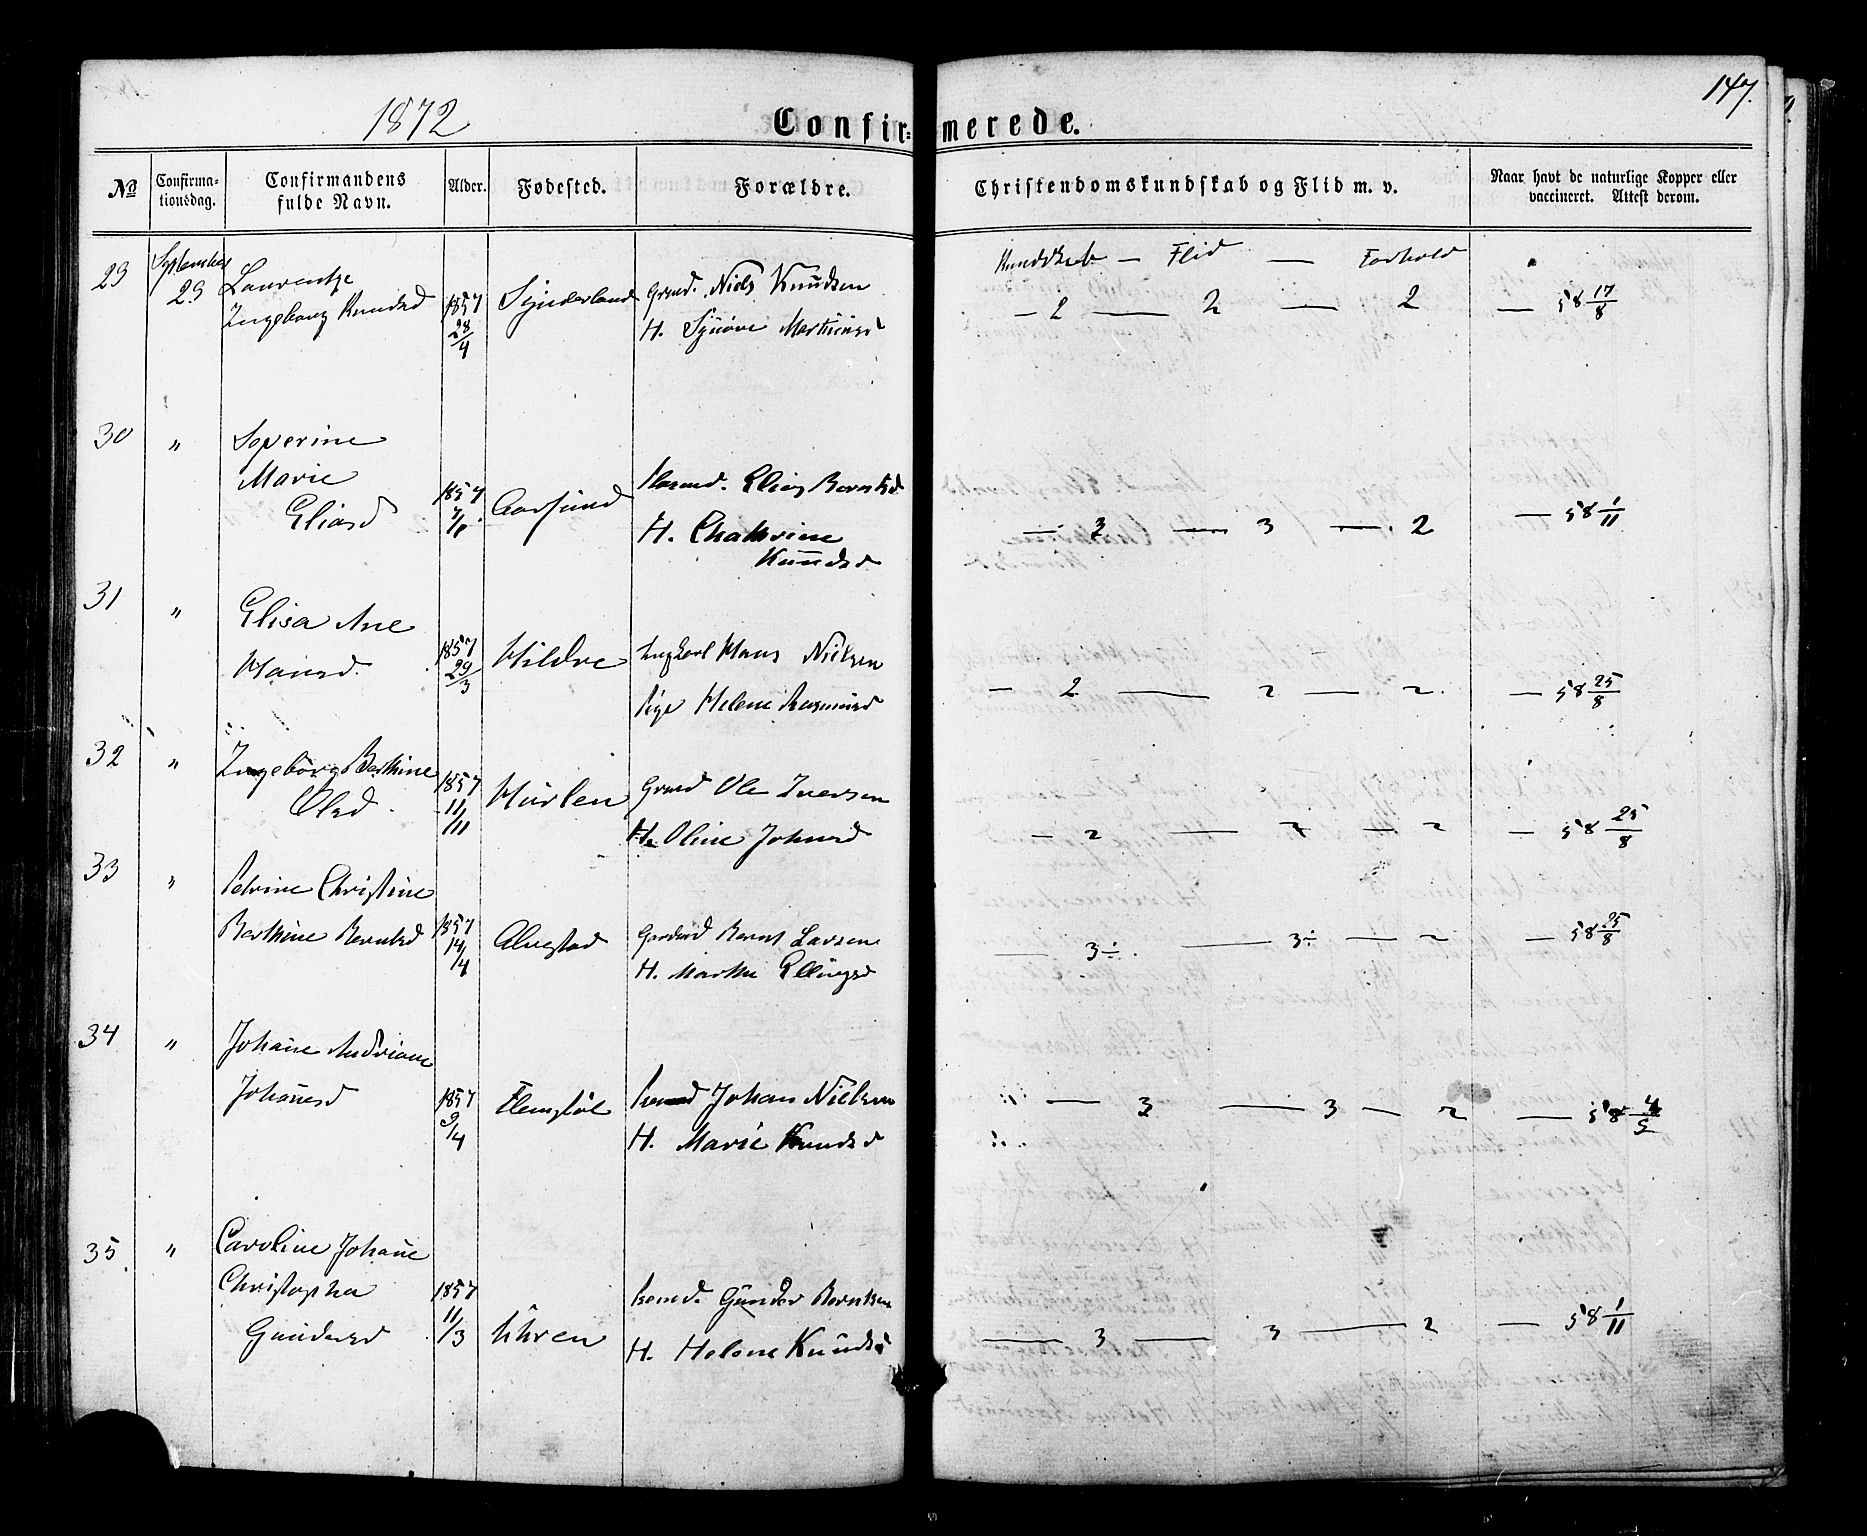 1872
147.
Confir= merede.
No
Confirma-
tionsdag.
Confirmandens
fulde Navn.
Alder.
Fødested.
Forældre.
Christendomskundskab og Flid m. v.
Naar havt de naturlige Kopper eller
vaccineret. Attest derom.
29 September 29
Laurentze
Ingeborg Knudsd
1857 28/4
Synderland
Grmd. Niels Knudsen
H. Synøve Martinusd
Kundskab — Flid — Forhold
— 2 — 2 — 2 — 58 17/8
30 "
Severine
Marie
Eliasd
1857
Elias Berntsd
H. Chathrine
Knudsd
— 3 — 3 — 2 — 58 1/11
31 "
Elisa Ane
Hansd.
1857 29/3
Hildre
Ungkarl Hans Nielsen
Pige Helene Rasmusd
— 2 — 2 — 2. — 58 25/8
32 "
Ingebørg Berthine
Olsd.
1857 11/11
Hurlen
Grmd Ole Iversen
H. Oline Johnsd
— 2 — 2 — 2 — 58 25/8
33 "
Petrine Christine
Berthine Berntsd
1857 14/4
Alvestad
Gordmd Bernt Larsen
H. Marthe Ellingsd
— 3÷ — 3÷ — 2 — 58 25/8
34 "
Johane Andriane
Johansd
1857 9/4
Flemstøl
Johan Nielsen
H. Marie Knudsd
— 3 — 3 — 2 — 58 4/5
35. "
Caroline Johane
Christopha
Gundersd
1857 11/3
Uhren
Gunder Berntsen
H. Helene Knudsd
— 3 — 3 — 2 — 58 1/11